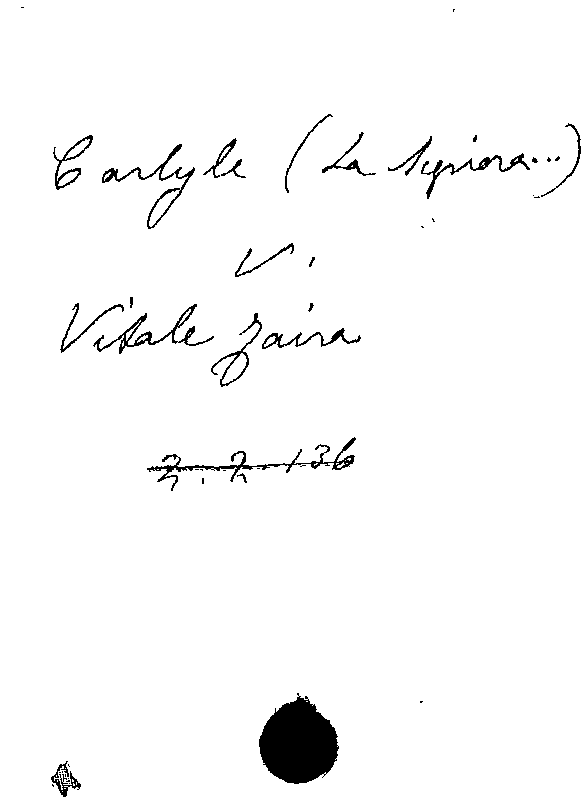 Carlyle (La Signora...)
V.
Vitale Zaira
2.2.136